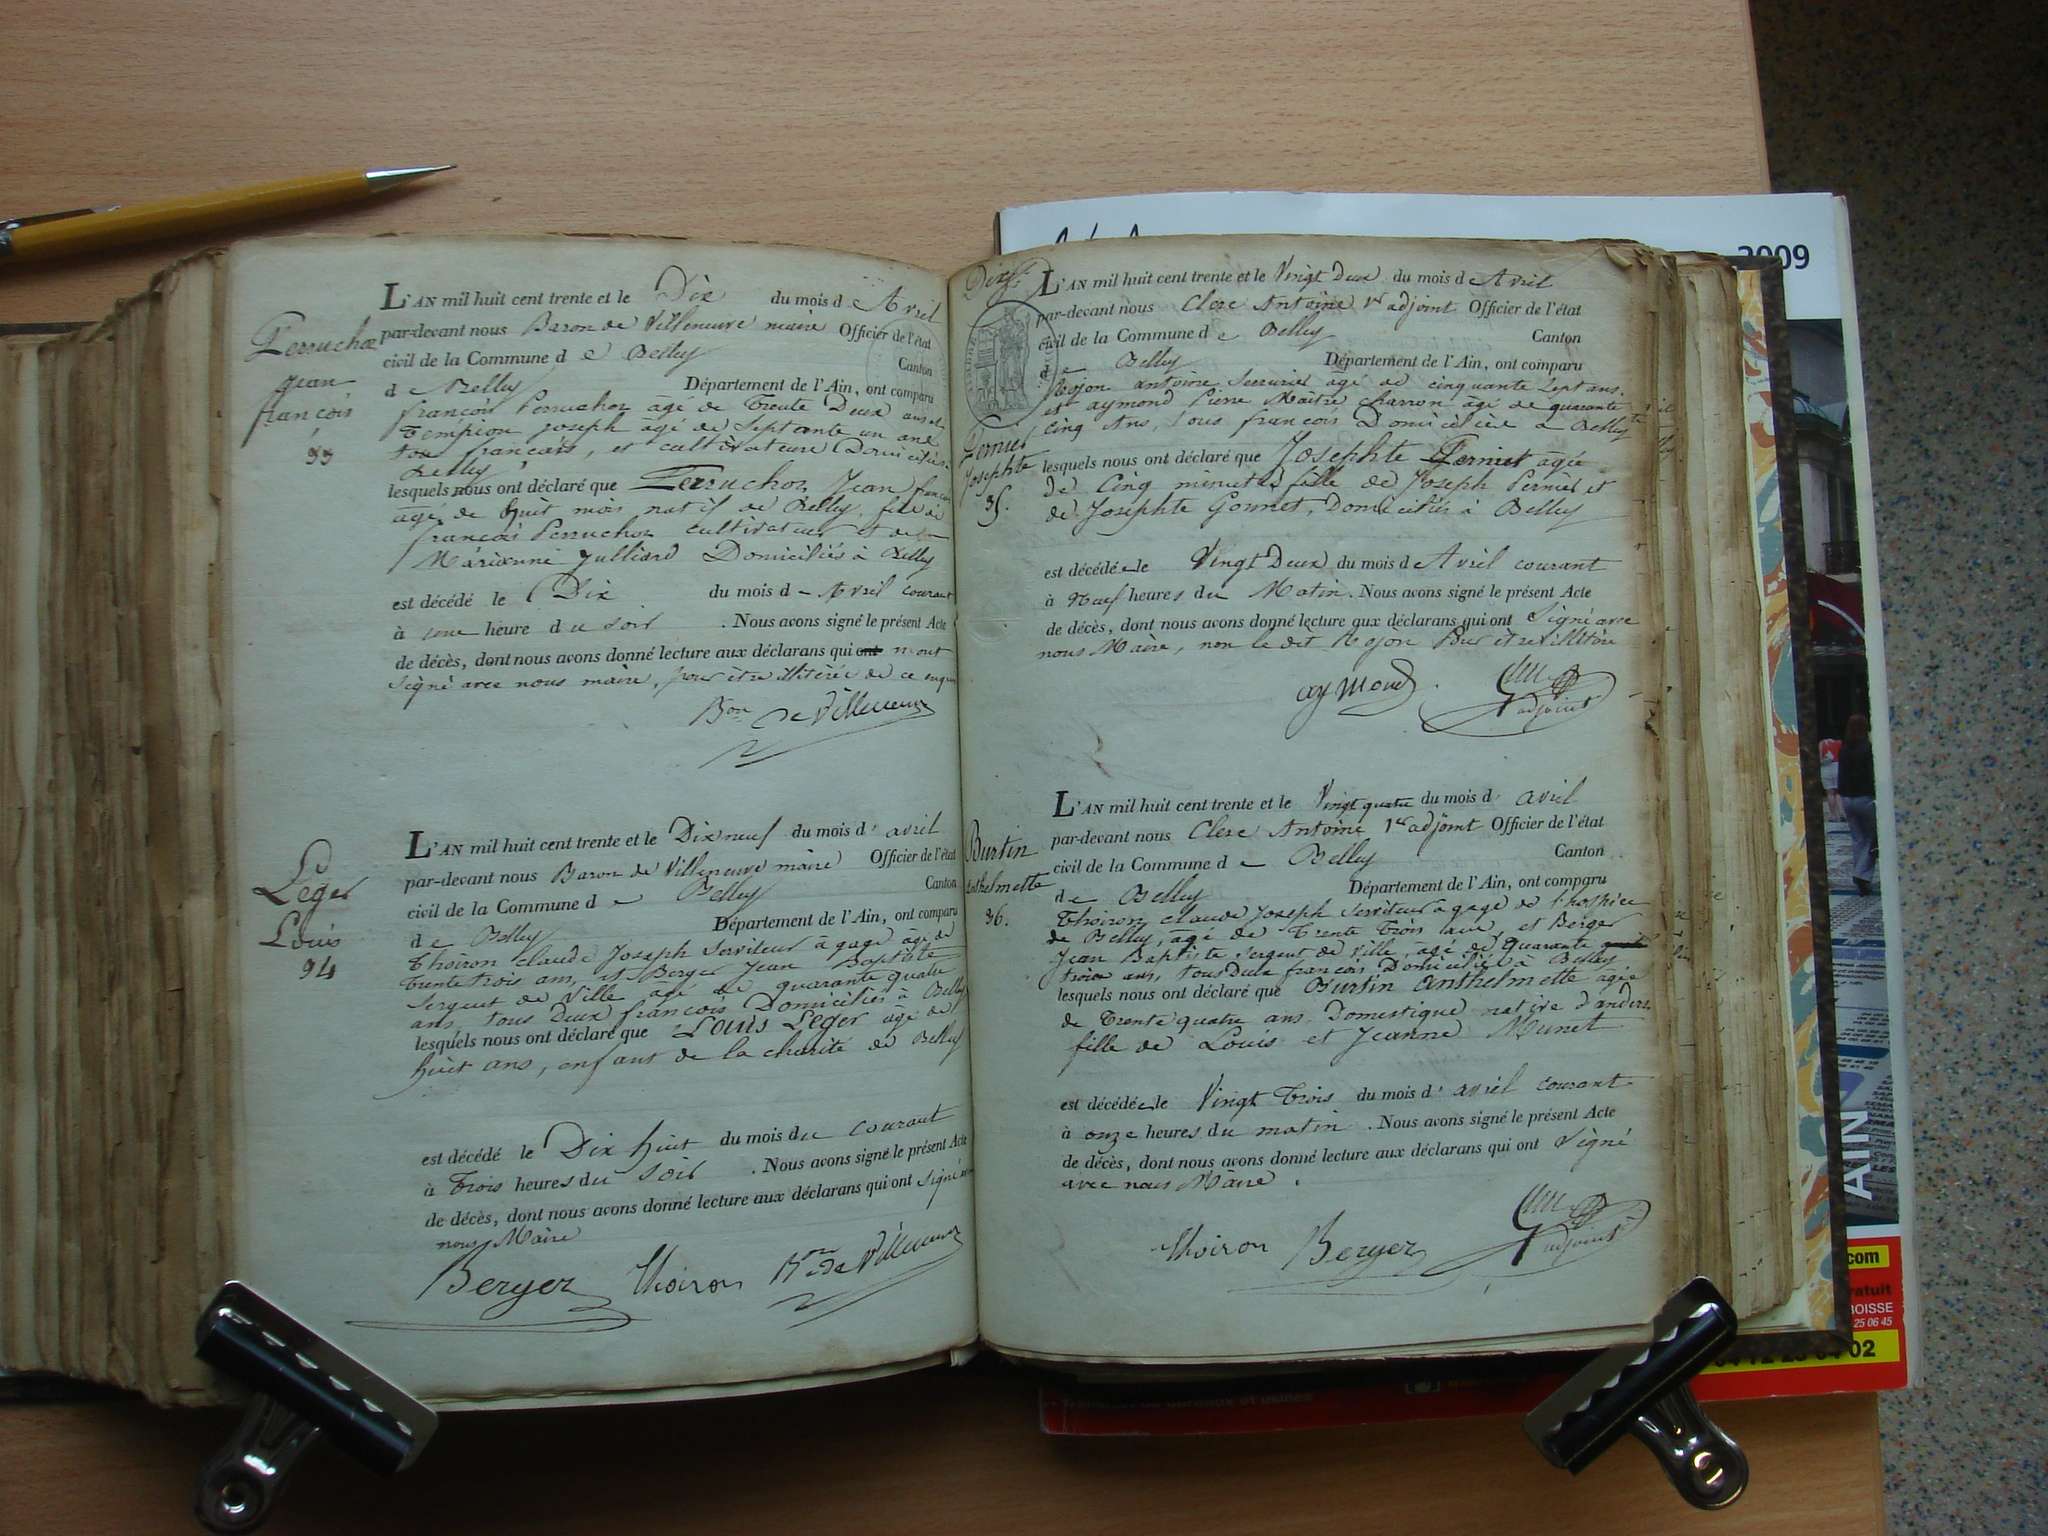 Perruchoz
Jean
françois
33
L'AN mil huit cent trente et le Dix du mois d e Avril
par-devant nous Baron de Villeneuve maire Officier de l'état
civil de la Commune d e Belley Canton
d e Belley Département de l'Ain, ont comparu
françois Perruchoz âgé de Trente Deux ans et
Tempion joseph âgé de Septante un ans
tous français, et cultivateurs Domiciliés
Belley
lesquels nous ont déclaré que Perruchoz Jean françois
âgé de huit mois natif de Belley, fils de
françois Perruchoz cultivateur et de
Marianne Julliard Domiciliés à Belley
est décédé le Dix du mois d Avril courant
à une heure d u soir . Nous avons signé le présent Acte
de décès, dont nous avons donné lecture aux déclarans qui ont n'ont
signé avec nous maire, pour être illitérés de ce
Bon de Villeneuve
Leger
Louis
94
L'AN mil huit cent trente et le Dix neuf du mois d' avril
par-devant nous Baron de Villeneuve maire Officier de l'état
civil de la Commune d e Belley Canton
d e Belley Département de l'Ain, ont comparu
Thoiron claude Joseph Serviteur à gage âgé de
trente trois ans, et Berger Jean Baptiste
Sergent de Ville âgé de quarante quatre
ans, tous Deux françois Domiciliés à Belley
lesquels nous ont déclaré que Louis Leger âgé de
huit ans, enfant de la charité de Belley
est décédé le Dix huit du mois d u courant
à Trois heures du soir . Nous avons signé le présent Acte
de décès, dont nous avons donné lecture aux déclarans qui ont signé
nous Maire
Berger Thoiron Bon de Villeneuve
L'AN mil huit cent trente et le Vingt Deux du mois d e Avril
par-devant nous Clerc Antoine 1er adjoint Officier de l'état
civil de la Commune d e Belley Canton
d e Belley Département de l'Ain, ont comparu
Rojon antoine Serrurier âgé de cinquante Sept ans,
et aymond Pierre Maitre charron âgé de quarante
cinq Ans, Tous françois Domiciliés à Belley
Pernier
Josephte
35.
lesquels nous ont déclaré que Josephte Pernier agée
de Cinq minutes fille de Joseph Pernier et
de Josephte Gonnet, Domiciliés à Belley
est décédé e le Vingt Deux du mois d e Avril courant
à Neuf heures du Matin. Nous avons signé le présent Acte
de décès, dont nous avons donné lecture aux déclarans qui ont Signé avec
nous Maire, non le dit Rojon Pour être illitéré
aymond adjoint
Burtin
Anthelmette
36.
L'AN mil huit cent trente et le Vingt quatre du mois d' avril
par-devant nous Clerc Antoine 1er adjoint Officier de l'état
civil de la Commune d e Belley Canton
d e Belley Département de l'Ain, ont comparu
Thoiron claude Joseph Serviteur à gage de l'hospice
de Belley, âgé de Trente Trois ans, et Berger
Jean Baptiste Sergent de Ville, âgé de quarante
trois ans, tous Deux françois Domiciliés à Belley
lesquels nous ont déclaré que Burtin Anthelmette agée
de Trente quatre ans Domestique native d'andert
fille de Louis et Jeanne Munet
est décédé e le Vingt Trois du mois d' avril courant
à onze heures du matin . Nous avons signé le présent Acte
de décès, dont nous avons donné lecture aux déclarans qui ont Signé
avec nous Maire.
Thoiron Berger adjoint
2009
AIN
.com
gratuit
BOISSE
25 06 45
02